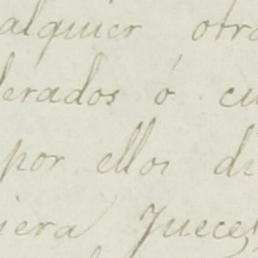 alquier otro
lerados ó cu
por ellos di
iera Jueces